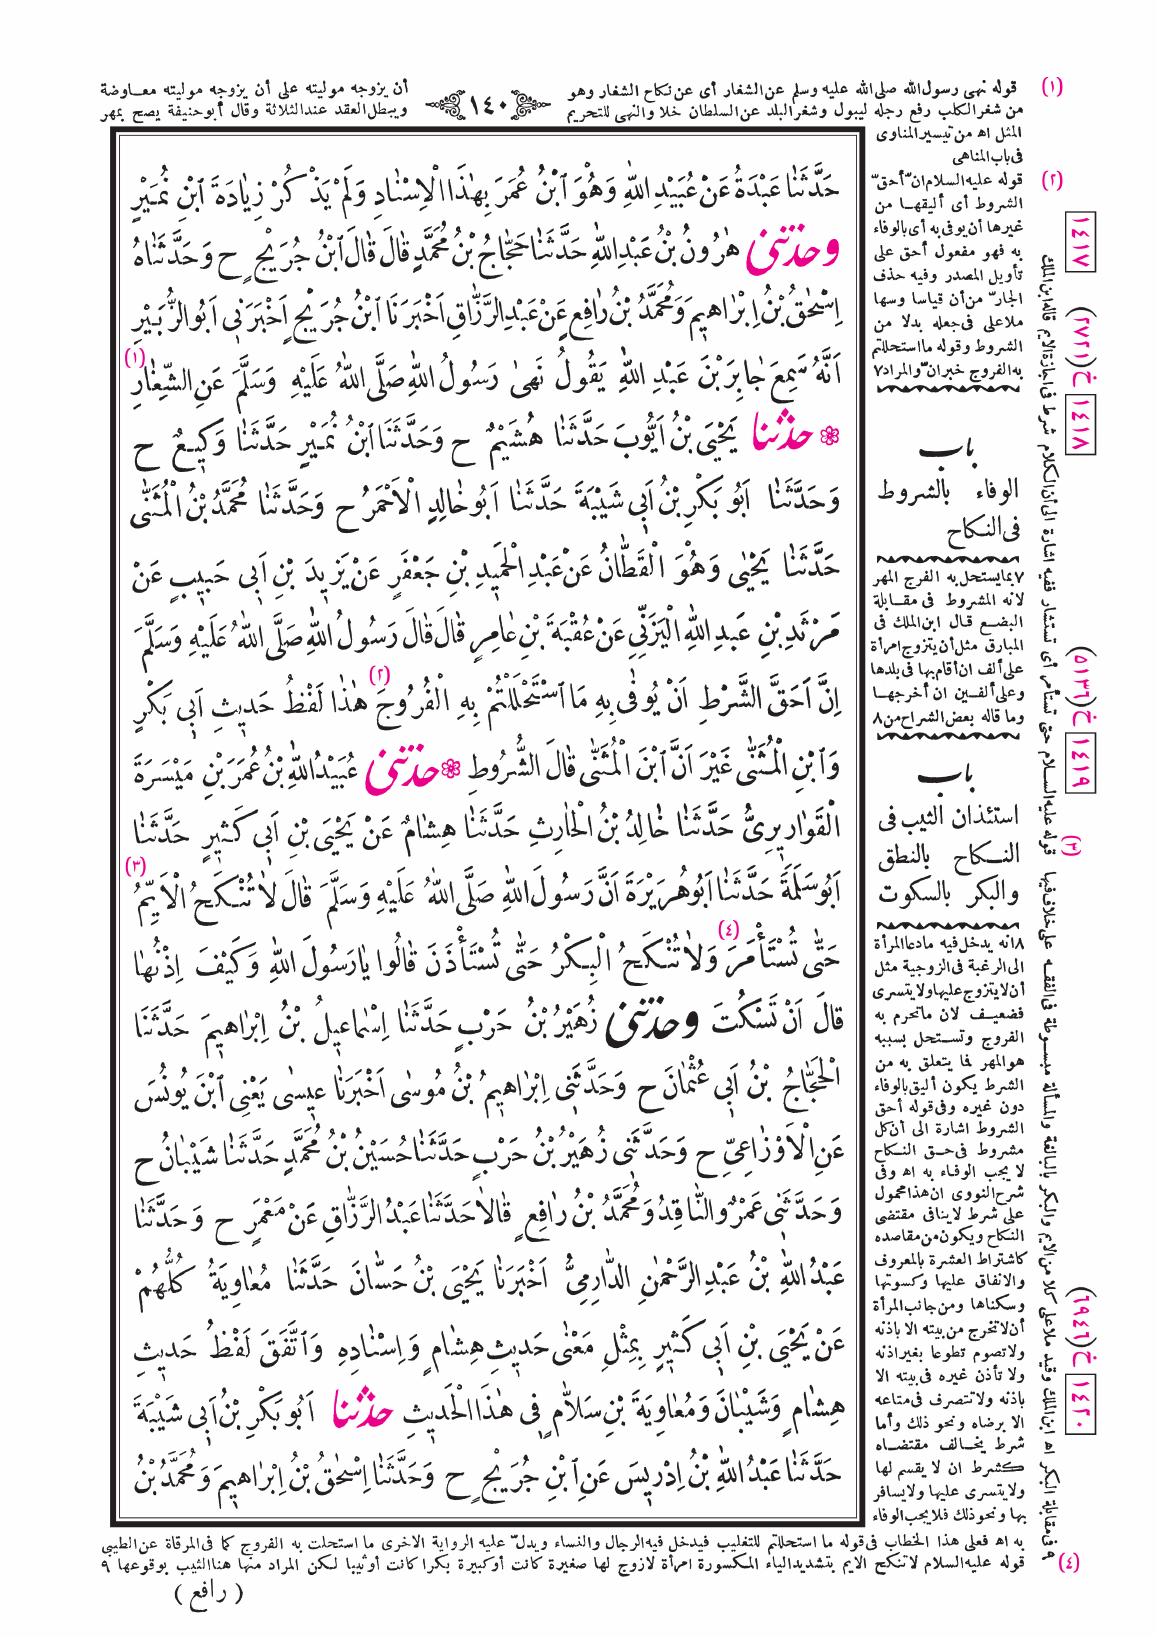 (١) قوله نهى رسول الله صلى الله عليه وسلم عن الشغار أى عن نكاح الشغار وهو
من شغر الكلب رفع رجله ليبول وشغر البلد عن السلطان خلا والنهى للتحريم
١٤٠
أن يزوجه موليته على أن يزوجه موليته معاوضة
ويبطل العقد عند الثلاثة وقال أبو حنيفة يصح بمهر
المثل اه من تيسير المناوى
فى باب المناهى
(٢) قوله عليه السلام ان أحق
الشروط أى أليقها من
غيرها أن يوفى به أى بالوفاء
به فهو مفعول أحق على
تأويل المصدر وفيه حذف
الجار من أن قياسا وسها
ملاعلى فى جعله بدلا من
الشروط وقوله ما استحللتم
به الفروج خبر ان والمراد ٧
باب
الوفاء بالشروط
فى النكاح
٧ بما يستحل به الفرج المهر
لانه المشروط فى مقابلة
البضع قال ابن الملك فى
المبارق مثل أن يتزوج امرأة
على ألف ان أقام بها فى بلدها
وعلى ألفين ان أخرجها
وما قاله بعض الشراح من ٨
باب
استئذان الثيب فى
النكاح بالنطق
والبكر بالسكوت
٨ انه يدخل فيه ما دعا المرأة
الى الرغبة فى الزوجية مثل
أن لا يتزوج عليها ولا يتسرى
فضعيف لان ما تحرم به
الفروج وتستحل بسببه
هو المهر فما يتعلق به من
الشرط يكون أليق بالوفاء
دون غيره وفى قوله أحق
الشروط اشارة الى أن كل
مشروط فى حق النكاح
لا يجب الوفاء به اه وفى
شرح النووى ان هذا محمول
على شرط لا ينافى مقتضى
النكاح ويكون من مقاصده
كاشتراط العشرة بالمعروف
والانفاق عليها وكسوتها
وسكناها ومن جانب المرأة
أن لا تخرج من بيته الا باذنه
ولا تصوم تطوعا بغير اذنه
ولا تأذن غيره فى بيته الا
باذنه ولا تتصرف فى متاعه
الا برضاه ونحو ذلك وأما
شرط يخالف مقتضاه
كشرط ان لا يقسم لها
ولا يتسرى عليها ولا يسافر
بها ونحو ذلك فلا يجب الوفاء
حَدَّثَنَا عَبْدَةُ عَنْ عُبَيْدِ اللّٰهِ وَهُوَ ابْنُ عُمَرَ بِهٰذَا الْاِسْنَادِ وَلَمْ يَذْكُرْ زِيَادَةَ ابْنِ نُمَيْرٍ
وحَدَّثَنِى هٰرُونُ بْنُ عَبْدِ اللّٰهِ حَدَّثَنَا حَجَّاجُ بْنُ مُحَمَّدٍ قَالَ قَالَ ابْنُ جُرَيْجٍ ح وَحَدَّثَنَاهُ
اِسْحٰقُ بْنُ اِبْرَاهِيمَ وَمُحَمَّدُ بْنُ رَافِعٍ عَنْ عَبْدِ الرَّزَّاقِ اَخْبَرَنَا ابْنُ جُرَيْجٍ اَخْبَرَنِى اَبُو الزُّبَيْرِ
اَنَّهُ سَمِعَ جَابِرَ بْنَ عَبْدِ اللّٰهِ يَقُولُ نَهٰى رَسُولُ اللّٰهِ صَلَّى اللّٰهُ عَلَيْهِ وَسَلَّمَ عَنِ الشِّغَارِ (١)
❁ حَدَّثَنَا يَحْيَى بْنُ اَيُّوبَ حَدَّثَنَا هُشَيْمٌ ح وَحَدَّثَنَا ابْنُ نُمَيْرٍ حَدَّثَنَا وَكِيعٌ ح
وَحَدَّثَنَا اَبُو بَكْرِ بْنُ اَبِى شَيْبَةَ حَدَّثَنَا اَبُو خَالِدٍ الْاَحْمَرُ ح وَحَدَّثَنَا مُحَمَّدُ بْنُ الْمُثَنَّى
حَدَّثَنَا يَحْيٰى وَهُوَ الْقَطَّانُ عَنْ عَبْدِ الْحَمِيدِ بْنِ جَعْفَرٍ عَنْ يَزِيدَ بْنِ اَبِى حَبِيبٍ عَنْ
مَرْثَدِ بْنِ عَبْدِ اللّٰهِ الْيَزَنِىِّ عَنْ عُقْبَةَ بْنِ عَامِرٍ قَالَ قَالَ رَسُولُ اللّٰهِ صَلَّى اللّٰهُ عَلَيْهِ وَسَلَّمَ
اِنَّ اَحَقَّ الشَّرْطِ اَنْ يُوفٰى بِهِ مَا اسْتَحْلَلْتُمْ بِهِ الْفُرُوجَ (٢) هٰذَا لَفْظُ حَدِيثِ اَبِى بَكْرٍ
وَابْنِ الْمُثَنَّى غَيْرَ اَنَّ ابْنَ الْمُثَنَّى قَالَ الشُّرُوطِ ❁ حَدَّثَنِى عُبَيْدُ اللّٰهِ بْنُ عُمَرَ بْنِ مَيْسَرَةَ
الْقَوَارِيرِىُّ حَدَّثَنَا خَالِدُ بْنُ الْحَارِثِ حَدَّثَنَا هِشَامٌ عَنْ يَحْيَى بْنِ اَبِى كَثِيرٍ حَدَّثَنَا
اَبُو سَلَمَةَ حَدَّثَنَا اَبُو هُرَيْرَةَ اَنَّ رَسُولَ اللّٰهِ صَلَّى اللّٰهُ عَلَيْهِ وَسَلَّمَ قَالَ لَا تُنْكَحُ الْاَيِّمُ (٣)
حَتّٰى تُسْتَأْمَرَ وَلَا تُنْكَحُ (٤) الْبِكْرُ حَتّٰى تُسْتَأْذَنَ قَالُوا يَا رَسُولَ اللّٰهِ وَكَيْفَ اِذْنُهَا
قَالَ اَنْ تَسْكُتَ وحَدَّثَنِى زُهَيْرُ بْنُ حَرْبٍ حَدَّثَنَا اِسْمَاعِيلُ بْنُ اِبْرَاهِيمَ حَدَّثَنَا
الْحَجَّاجُ بْنُ اَبِى عُثْمَانَ ح وَحَدَّثَنِى اِبْرَاهِيمُ بْنُ مُوسٰى اَخْبَرَنَا عِيسٰى يَعْنِى ابْنَ يُونُسَ
عَنِ الْاَوْزَاعِىِّ ح وَحَدَّثَنِى زُهَيْرُ بْنُ حَرْبٍ حَدَّثَنَا حُسَيْنُ بْنُ مُحَمَّدٍ حَدَّثَنَا شَيْبَانُ ح
وَحَدَّثَنِى عَمْرٌو النَّاقِدُ وَمُحَمَّدُ بْنُ رَافِعٍ قَالَا حَدَّثَنَا عَبْدُ الرَّزَّاقِ عَنْ مَعْمَرٍ ح وَحَدَّثَنَا
عَبْدُ اللّٰهِ بْنُ عَبْدِ الرَّحْمٰنِ الدَّارِمِىُّ اَخْبَرَنَا يَحْيَى بْنُ حَسَّانَ حَدَّثَنَا مُعَاوِيَةُ كُلُّهُمْ
عَنْ يَحْيَى بْنِ اَبِى كَثِيرٍ بِمِثْلِ مَعْنٰى حَدِيثِ هِشَامٍ وَاِسْنَادِهِ وَاتَّفَقَ لَفْظُ حَدِيثِ
هِشَامٍ وَشَيْبَانَ وَمُعَاوِيَةَ بْنِ سَلَّامٍ فِى هٰذَا الْحَدِيثِ حَدَّثَنَا اَبُو بَكْرِ بْنُ اَبِى شَيْبَةَ
حَدَّثَنَا عَبْدُ اللّٰهِ بْنُ اِدْرِيسَ عَنِ ابْنِ جُرَيْجٍ ح وَحَدَّثَنَا اِسْحٰقُ بْنُ اِبْرَاهِيمَ وَمُحَمَّدُ بْنُ
به اه فعلى هذا الخطاب فى قوله ما استحللتم للتغليب فيدخل فيه الرجال والنساء ويدل عليه الرواية الاخرى ما استحلت به الفروج كما فى المرقاة عن الطيبى
(٤) قوله عليه السلام لا تنكح الايم بتشديد الياء المكسورة امرأة لا زوج لها صغيرة كانت أو كبيرة بكرا كانت أو ثيبا لكن المراد منها هنا الثيب بوقوعها ٩
( رافع )
٩ فى مقابلة البكر اه ابن الملك وقيد ملاعلى كلا من الايم والبكر بالبالغة والمسألة مبسوطة فى الفقه على خلاف فيها
(٣) قوله عليه السلام حتى تستأمر أى تستشار ففيه اشارة الى أن الكلام شرط فى اجازة الايم قاله ابن الملك
١٤١٧
١٤١٨ خ (٢٧٢١)
١٤١٩ خ (٥١٣٦)
١٤٢٠ خ (٦٩٤٦)